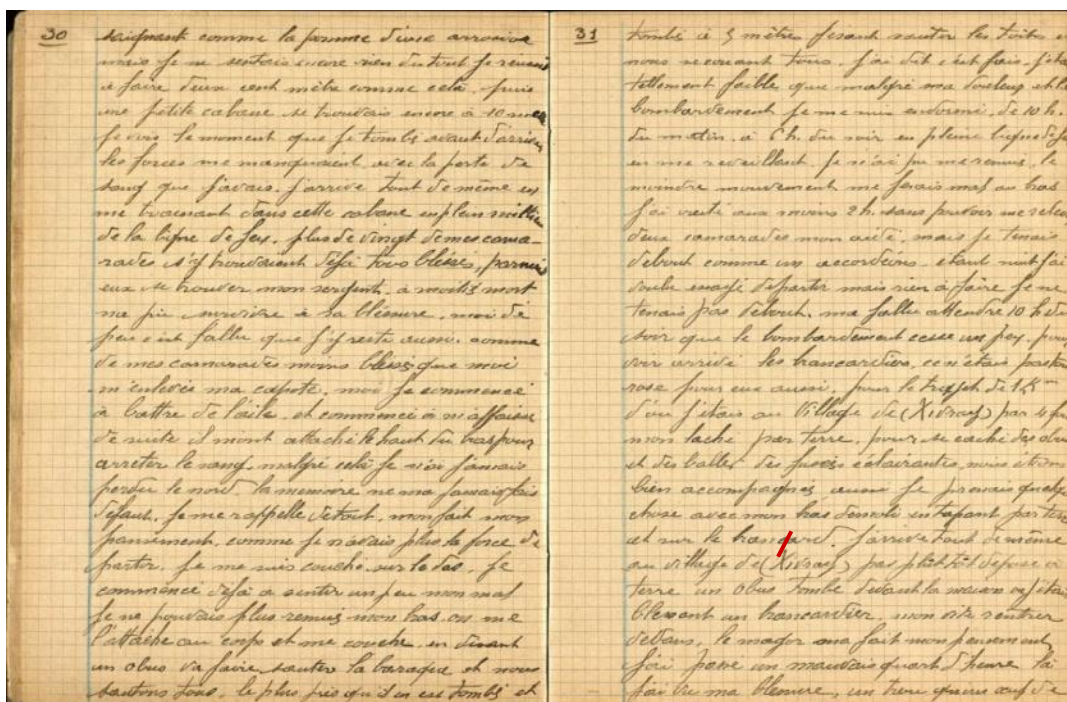 30
saignant comme la pomme d'une arrosoir
mais je ne sentais encore rien du tout je reussi
a faire deux cent mètre comme celà, puis
une petite cabane se trouvais encore à 10 m
je vois le moment que je tombe avant d'arriver
les forces me manquaient, avec la perte de
sang que j'avais, j'arrive tout de même en
me trainant dans cette cabane en plein millieu
de la ligne de feu, plus de vingt de mes cama-
rades s'y trouvaient déjà tous blessés, parmi
eux se trouver mon sergent, a moitié mort
na pu survivre à sa blessure, moi de
peu s'est fallu que j'y reste aussi. comme
de mes camarades moins blessés que moi
m'enlevés ma capote, moi je commence
à battre de l'aile, et commence à m'affaiser
de suite il mont attaché le haut du bras pour
arreter le sang, malgré celà je n'ai jamais
perdu le nord, la memoire ne ma jamais fais
défaut, je me rappelle de tout, mon fait mon
pansement, comme je n'avais plus la force de
partir, je me suis couche sur le dos, je
commence déjà a sentir un peu mon mal
je ne pouvais plus remuer mon bras, on me
l'attache au corps et me couche, en disant
un obus va faire sauter la baraque et nous
sautons tous, le plus près qu'il en est tombé et
31
tombé à 5 mètres fesant sauter les toits et
nous secouant tous, j'ai dit c'est fais, j'étai
tellement faible que malgré ma douleur et le
bombardement je me suis endormi, de 10 h.
du matin, à 6 h. du soir en pleine ligne de feu
en me reveillant, je n'ai pu me remuer, le
moindre mouvement me ferais mal au bras
j'ai resté au moins 2 h. sans pouvoir me relever
deux camarades mon aidé, mais je tenais
debout comme un accordéons, etant nuit j'ai
voulu essayé départir mais rien à faire je ne
tenais pas debout, ma fallu attendre 10 h du
soir que le bombardement cesse un peu, pour
voir arrivé les brancardiers, ce n'étais pas tout
rose pour eux aussi, pour le trajet de
d'ou j'étais au Village de (Xivray) par
mon laché par terre, pour se caché des obus
et des balles des fusées éclairantes, nous étions
bien accompagnés aussi je prenais quelque
chose avec mon bras démoli en tapant par terre
et sur le brancard, j'arrive tout de même
au village de (Xivray) pas plutôt déposé à
terre un obus tombe devant la maison ou j'étais
blessant un brancardier, mon vite rentrer
dedans, le major ma fait mon pensement,
j'ai passé un mauvais quart d'heure là
j'ai vu ma blessure, un trou œuf de